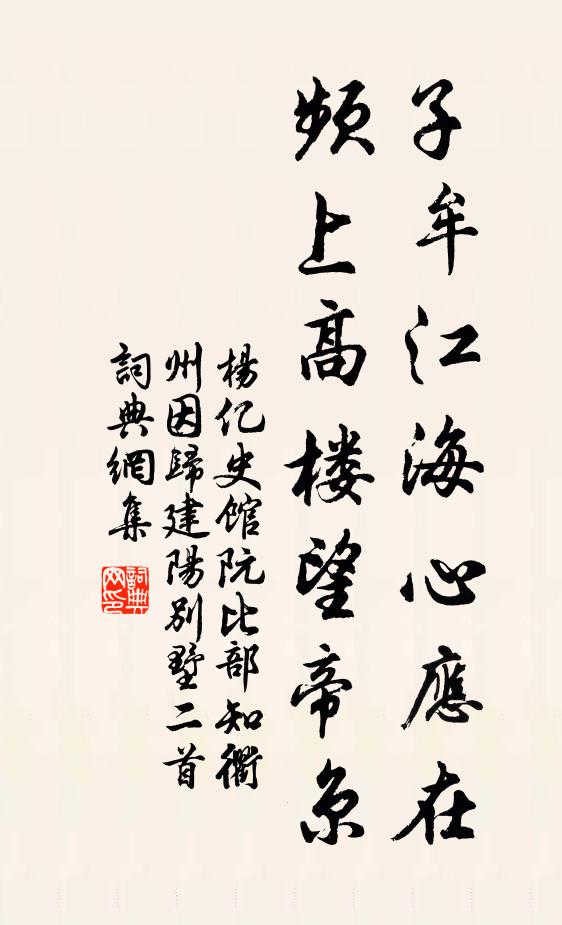 子牟江海心應在
頻上高楼望帝京
楊亿史館阮比部知衢
州因歸建陽別墅二首
詞典網集
詞典
网印